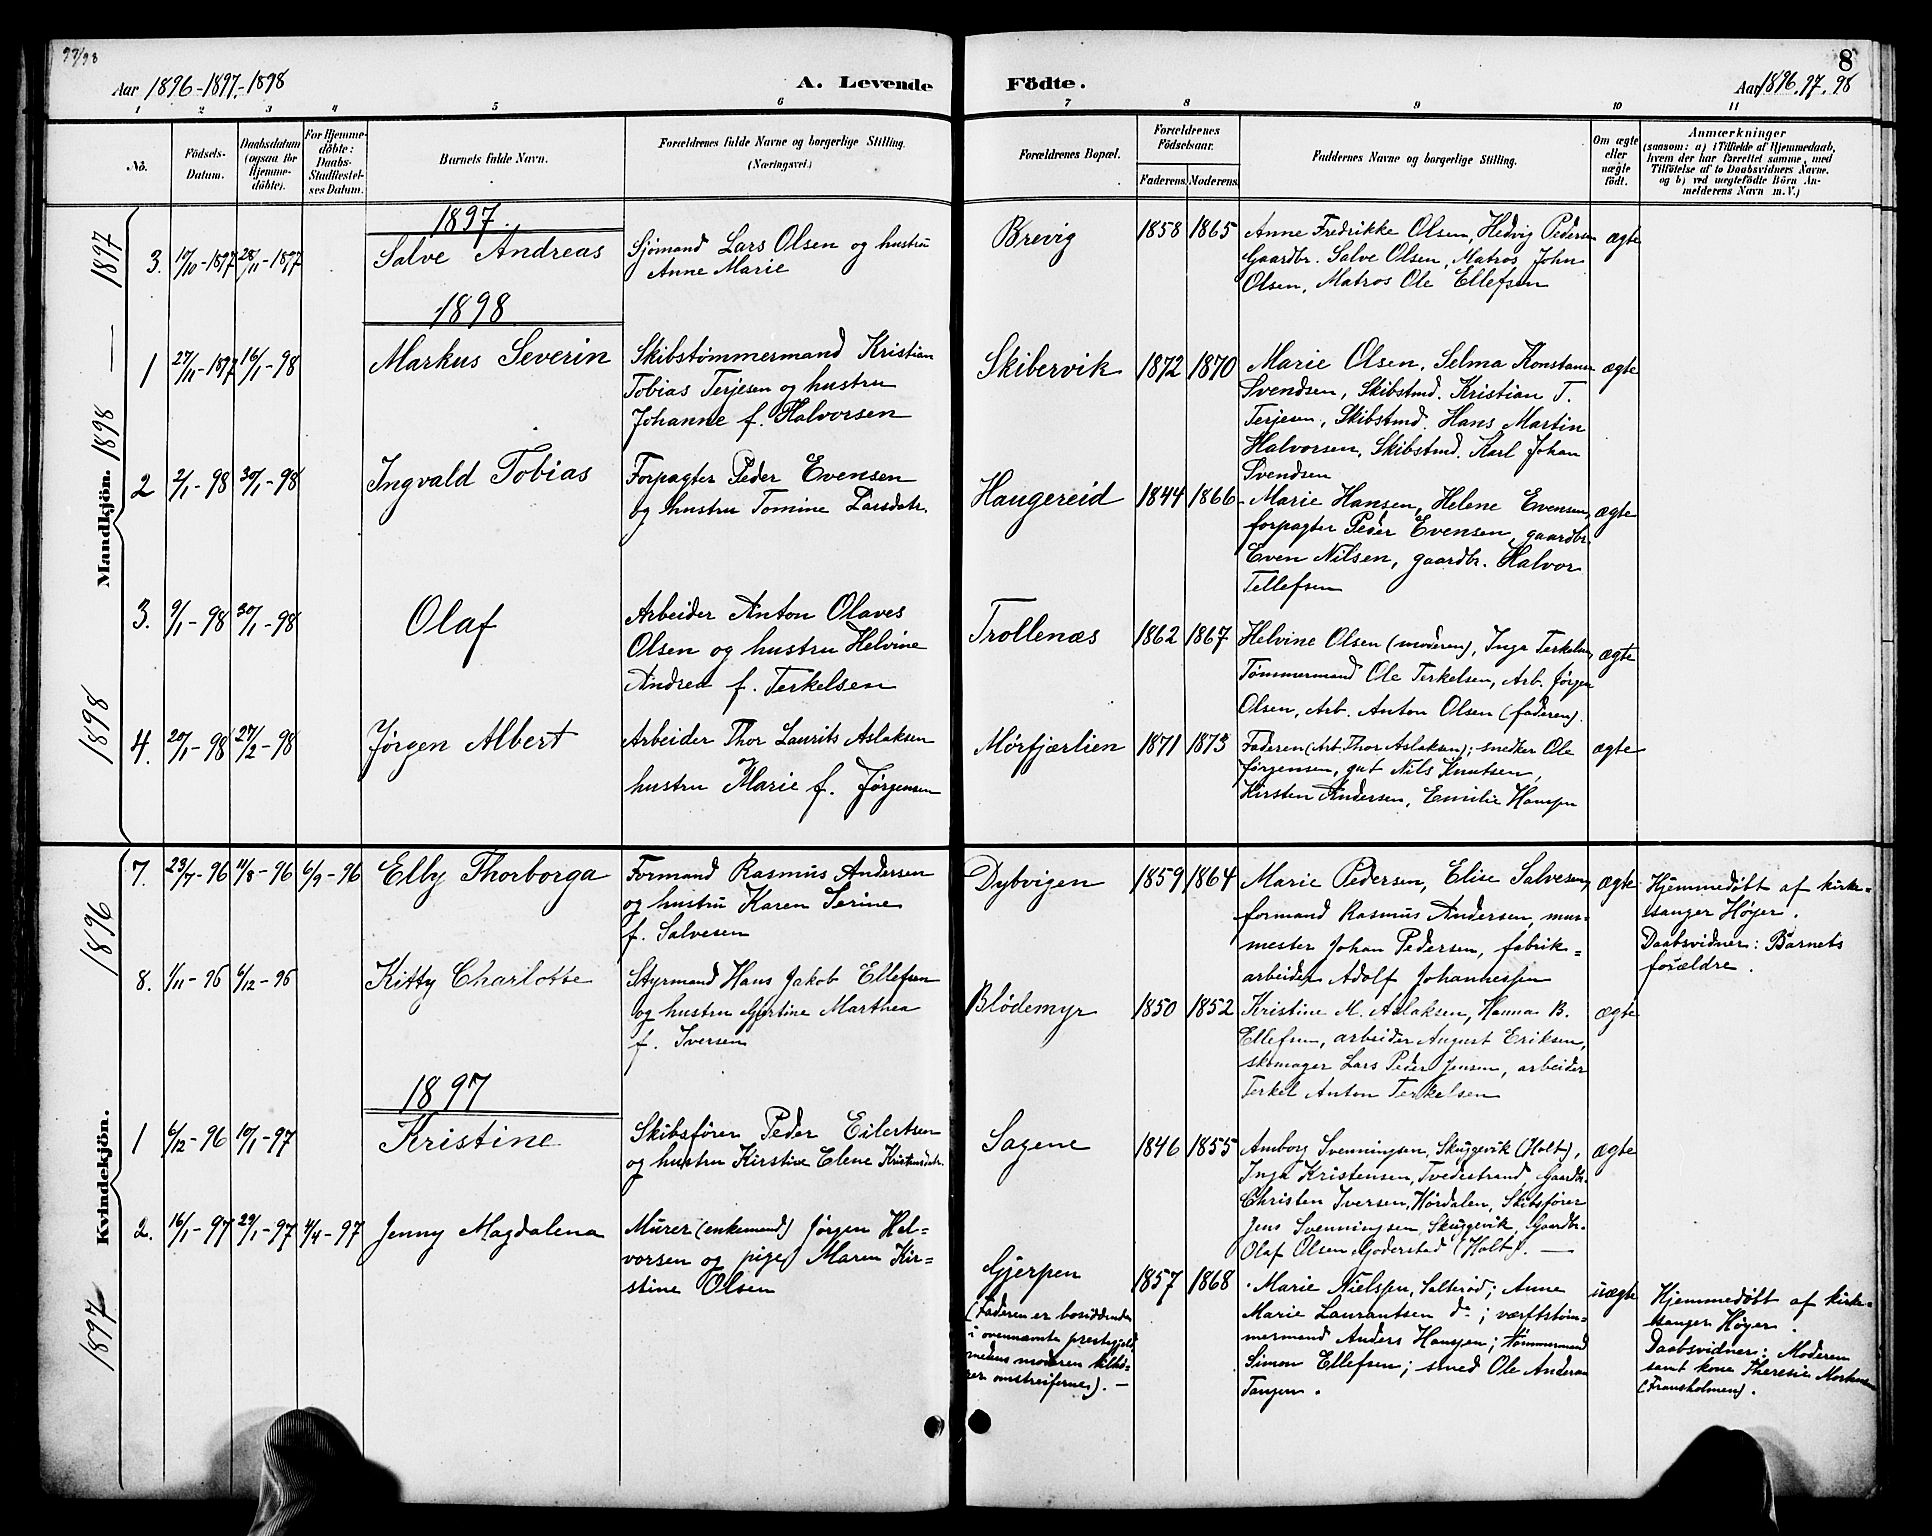 97/98
8
Aar 1896-1897-1898
A. Levende
Födte.
Aar 1896. 97. 98
1 2 3 4 5 6 7 8 9 10 11
No.
Födsels-
Datum.
Daabsdatum
(ogsaa för
Hjemme-
döbte).
For Hjemme-
döbte:
Daabs-
Stadfæstel-
ses Datum.
Barnets fulde Navn.
Forældrenes fulde Navne og borgerlige Stilling.
(Næringsvei.)
Forældrenes Bopæl.
Forældrenes
Födselsaar.
Faderens. Moderens.
Faddernes Navne og borgerlige Stilling.
Om ægte
eller
uægte
födt.
Anmærkninger
(saasom: a) i Tilfælde af Hjemmedaab,
hvem der har forrettet samme, med
Tilföielse af to Daabsvidners Navne.
og b) ved uægtefödte Börn An-
melderens Navn m. V.)
Mandkjön. 1898 — 1897
1898
1897.
3. 17/10-1897 28/11-1897
Salve Andreas
Sjømand Lars Olsen og hustru
Anne Marie
Brevig
1858 1865
Anne Fredrikke Olsen, Hedvig Pedersen
Gaardbr. Salve Olsen, Matros John
Olsen, Matros Ole Ellefsen
ægte
1898
1 27/11-1897 16/1-98
Markus Severin
Skibstømmermand Kristian
Tobias Terjesen og hustru
Johanne f. Halvorsen
Skibervik
1872 1870
Marie Olsen, Selma Konstanse
Svendsen, Skibstmd. Kristian T.
Terjesen, Skibstmd. Hans Martin
Halvorsen, Skibstmd. Karl Johan
Svendsen
ægte
2 2/1-98 30/1-98
Ingvald Tobias
Forpagter Peder Evensen
og hustru Tomine Larsdatr.
Haugereid
1844 1866
Marie Hansen, Helene Evensen,
forpagter Peder Evensen, gaardbr.
Even Nilsen, gaardbr. Halvor
Tellefsen
ægte
3. 9/1-98 30/1-98
Olaf
Arbeider Anton Olaves
Olsen og hustru Helvine
Andrea f. Terkelsen
Trollenæs
1862 1867
Helvine Olsen (moderen), Inga Terkelsen,
Tømmermand Ole Terkelsen, Arb. Jørgen
Olsen, Arb. Anton Olsen (faderen).
ægte
4. 20/1-98 27/2-98
Jørgen Albert
Arbeider Thor Laurits Aslaksen
og
hustru Marie f. Jørgensen
Mørfjærlien
1871 1873
Faderen (Arb. Thor Aslaksen); snedker Ole
Jørgensen, gut Nils Knutsen,
Kirsten Andersen, Emilie Hansen
ægte
Kvindekjön. 1896
1897
7. 23/7-96 11/8-96 6/9-96
Elby Thorborga
Formand Rasmus Andersen
og hustru Karen Serine
f. Salvesen
Dybvigen
1859 1864
Marie Pedersen, Elise Salvesen,
formand Rasmus Andersen, mur-
mester Johan Pedersen, fabrik-
arbeider Adolf Johannessen
ægte
Hjemmedøbt af kirke-
sanger Høyer.
Daabsvidner: Barnets
forældre.
8. 1/11-96 6/12-96
Kitty Charlotte
Styrmand Hans Jakob Ellefsen
og hustru Gjertine Marthea
f. Iversen
Blødemyr
1850 1852
Kristine M. Aslaksen, Hanna B.
Ellefsen, arbeider August Eriksen,
skomager Lars Peder Jensen, arbeider
Terkel Anton Terkelsen
ægte
1897
1 6/12-96 10/1-97
Kristine
Skibsfører Peder Eilertsen
og hustru Kirstine Elene Kristensdatr.
Sagene
1846 1855
Amborg Svenningsen, Skuggevik (Holt),
Inga Kristensen, Tvedestrand, Gaardbr.
Christen Iversen, Hørdalen, Skibsfører
Jens Svenningsen, Skuggevik, Gaardbr.
Olaf Olsen Goderstad (Holt). —
ægte
2. 16/1-97 29/1-97 4/4-97
Jenny Magdalena
Murer (enkemand) Jørgen Hal-
vorsen og pige Maren Kir-
stine Olsen
Gjerpen
(Faderen er bosiddende
i ovennævnte prestegjeld,
medens moderen tilhø-
rer omstreiferne). —
1857 1868
Marie Nielssen, Salterød; Anne
Marie Laurantsen do; værftstøm-
mermand Anders Hanssen; tømmermand
Simon Ellefsen; smed Ole Andersen
Tangen.
uægte
Hjemmedøbt af kirke-
sanger Høyer.
Daabsvidner: Moderen
samt kone Theresie
(Fransholmen).